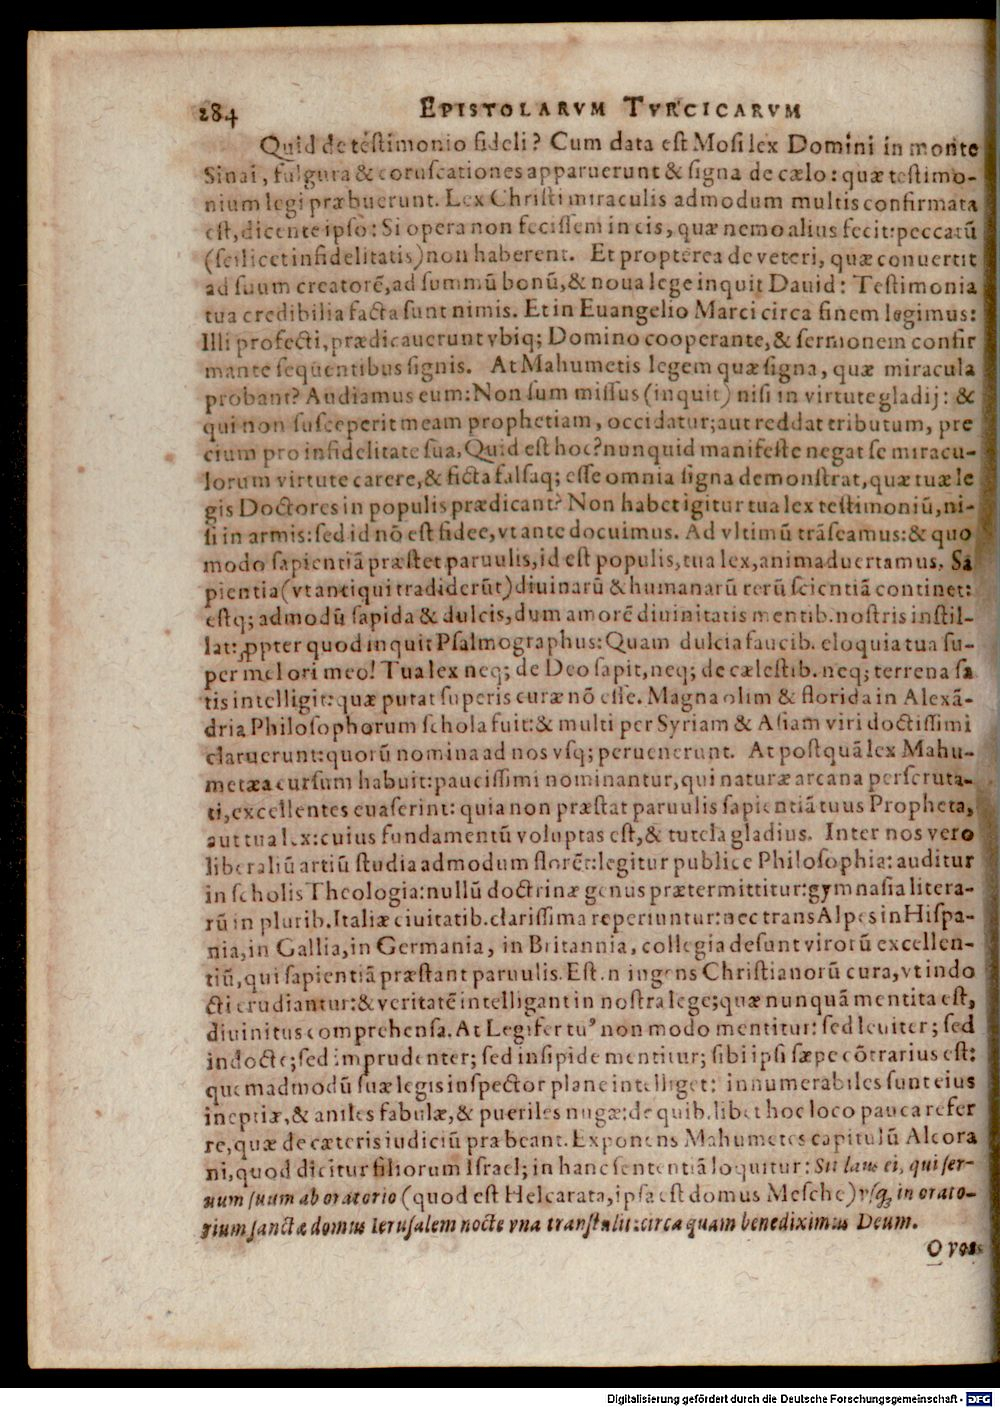 284 EPISTOLARVM TVRCICARVM
Quid de testimonio fideli? Cum data est Mosi lex Domini in monte
Sinai, fulgura & coruscationes apparuerunt & signa de cælo: quæ testimo-
nium legi præbuerunt. Lex Christi miraculis admodum multis confirmata
est, dicente ipso: Si opera non fecissem in eis, quæ nemo alius fecit: peccatū
(scilicet infidelitatis) non haberent. Et propterea de veteri, quæ conuertit
ad suum creatorē, ad summū bonū, & noua lege inquit Dauid: Testimonia
tua credibilia facta sunt nimis. Et in Euangelio Marci circa finem legimus:
Illi profecti, prædicauerunt vbiq; Domino cooperante, & sermonem confir
mante sequentibus signis. At Mahumetis legem quæ signa, quæ miracula
probant? Audiamus eum: Non sum missus (inquit) nisi in virtute gladij: &
qui non susceperit meam prophetiam, occidatur; aut reddat tributum, pre
cium pro infidelitate sua. Quid est hoc? nunquid manifeste negat se miracu-
lorum virtute carere, & ficta falsaq; esse omnia signa demonstrat, quæ tuæ le
gis Doctores in populis prædicant? Non habet igitur tua lex testimoniū, ni-
si in armis: sed id nō est fidee, vt ante docuimus. Ad vltimū trāseamus: & quo
modo sapientiā præstet paruulis, id est populis, tua lex, animaduertamus. Sa
pientia (vt antiqui tradiderūt) diuinarū & humanarū rerū scientiā continet:
estq; admodū sapida & dulcis, dum amorē diuinitatis mentib. nostris instil-
lat: ꝓpter quod inquit Psalmographus: Quam dulcia faucib. eloquia tua su-
per mel ori meo! Tua lex neq; de Deo sapit, neq; de cælestib. neq; terrena sa
tis intelligit: quæ putat superis curæ nō esse. Magna olim & florida in Alexā-
dria Philosophorum schola fuit: & multi per Syriam & Asiam viri doctissimi
claruerunt: quorū nomina ad nos vsq; peruenerunt. At postquā lex Mahu-
metæa cursum habuit: paucissimi nominantur, qui naturæ arcana perscruta-
ti, excellentes euaserint: quia non præstat paruulis sapientiā tuus Propheta,
aut tua lex: cuius fundamentū voluptas est, & tutela gladius. Inter nos vero
liberaliū artiū studia admodum florēt: legitur publice Philosophia: auditur
in scholis Theologia: nullū doctrinæ genus prætermittitur: gymnasia litera-
rū in plurib. Italiæ ciuitatib. clarissima reperiuntur: nec trans Alpes in Hispa-
nia, in Gallia, in Germania, in Britannia, collegia desunt virorū excellen-
tiū, qui sapientiā præstant paruulis. Est .n ingens Christianorū cura, vt indo
cti erudiantur: & veritatē intelligant in nostra lege; quæ nunquā mentita est,
diuinitus comprehensa. At Legifer tuꝰ non modo mentitur: sed leuiter; sed
indocte; sed imprudenter; sed insipide mentitur; sibi ipsi sæpe cōtrarius est:
quemadmodū suæ legis inspector plane intelliget: innumerabiles sunt eius
ineptiæ, & aniles fabulæ, & pueriles nugæ: de quib. libet hoc loco pauca refer
re, quæ de cæteris iudiciū præbeant. Exponens Mahumetes capitulū Alcora
ni, quod dicitur filiorum Israel; in hanc sententiā loquitur: Sit laus ei, qui ser-
uum suum ab oratorio (quod est Helcarata, ipsa est domus Mesche) vsq; in orato-
rium sanctæ domus Ierusalem nocte vna transtulit: circa quam benediximus Deum.
O vos
Digitalisierung gefördert durch die Deutsche Forschungsgemeinschaft - DFG